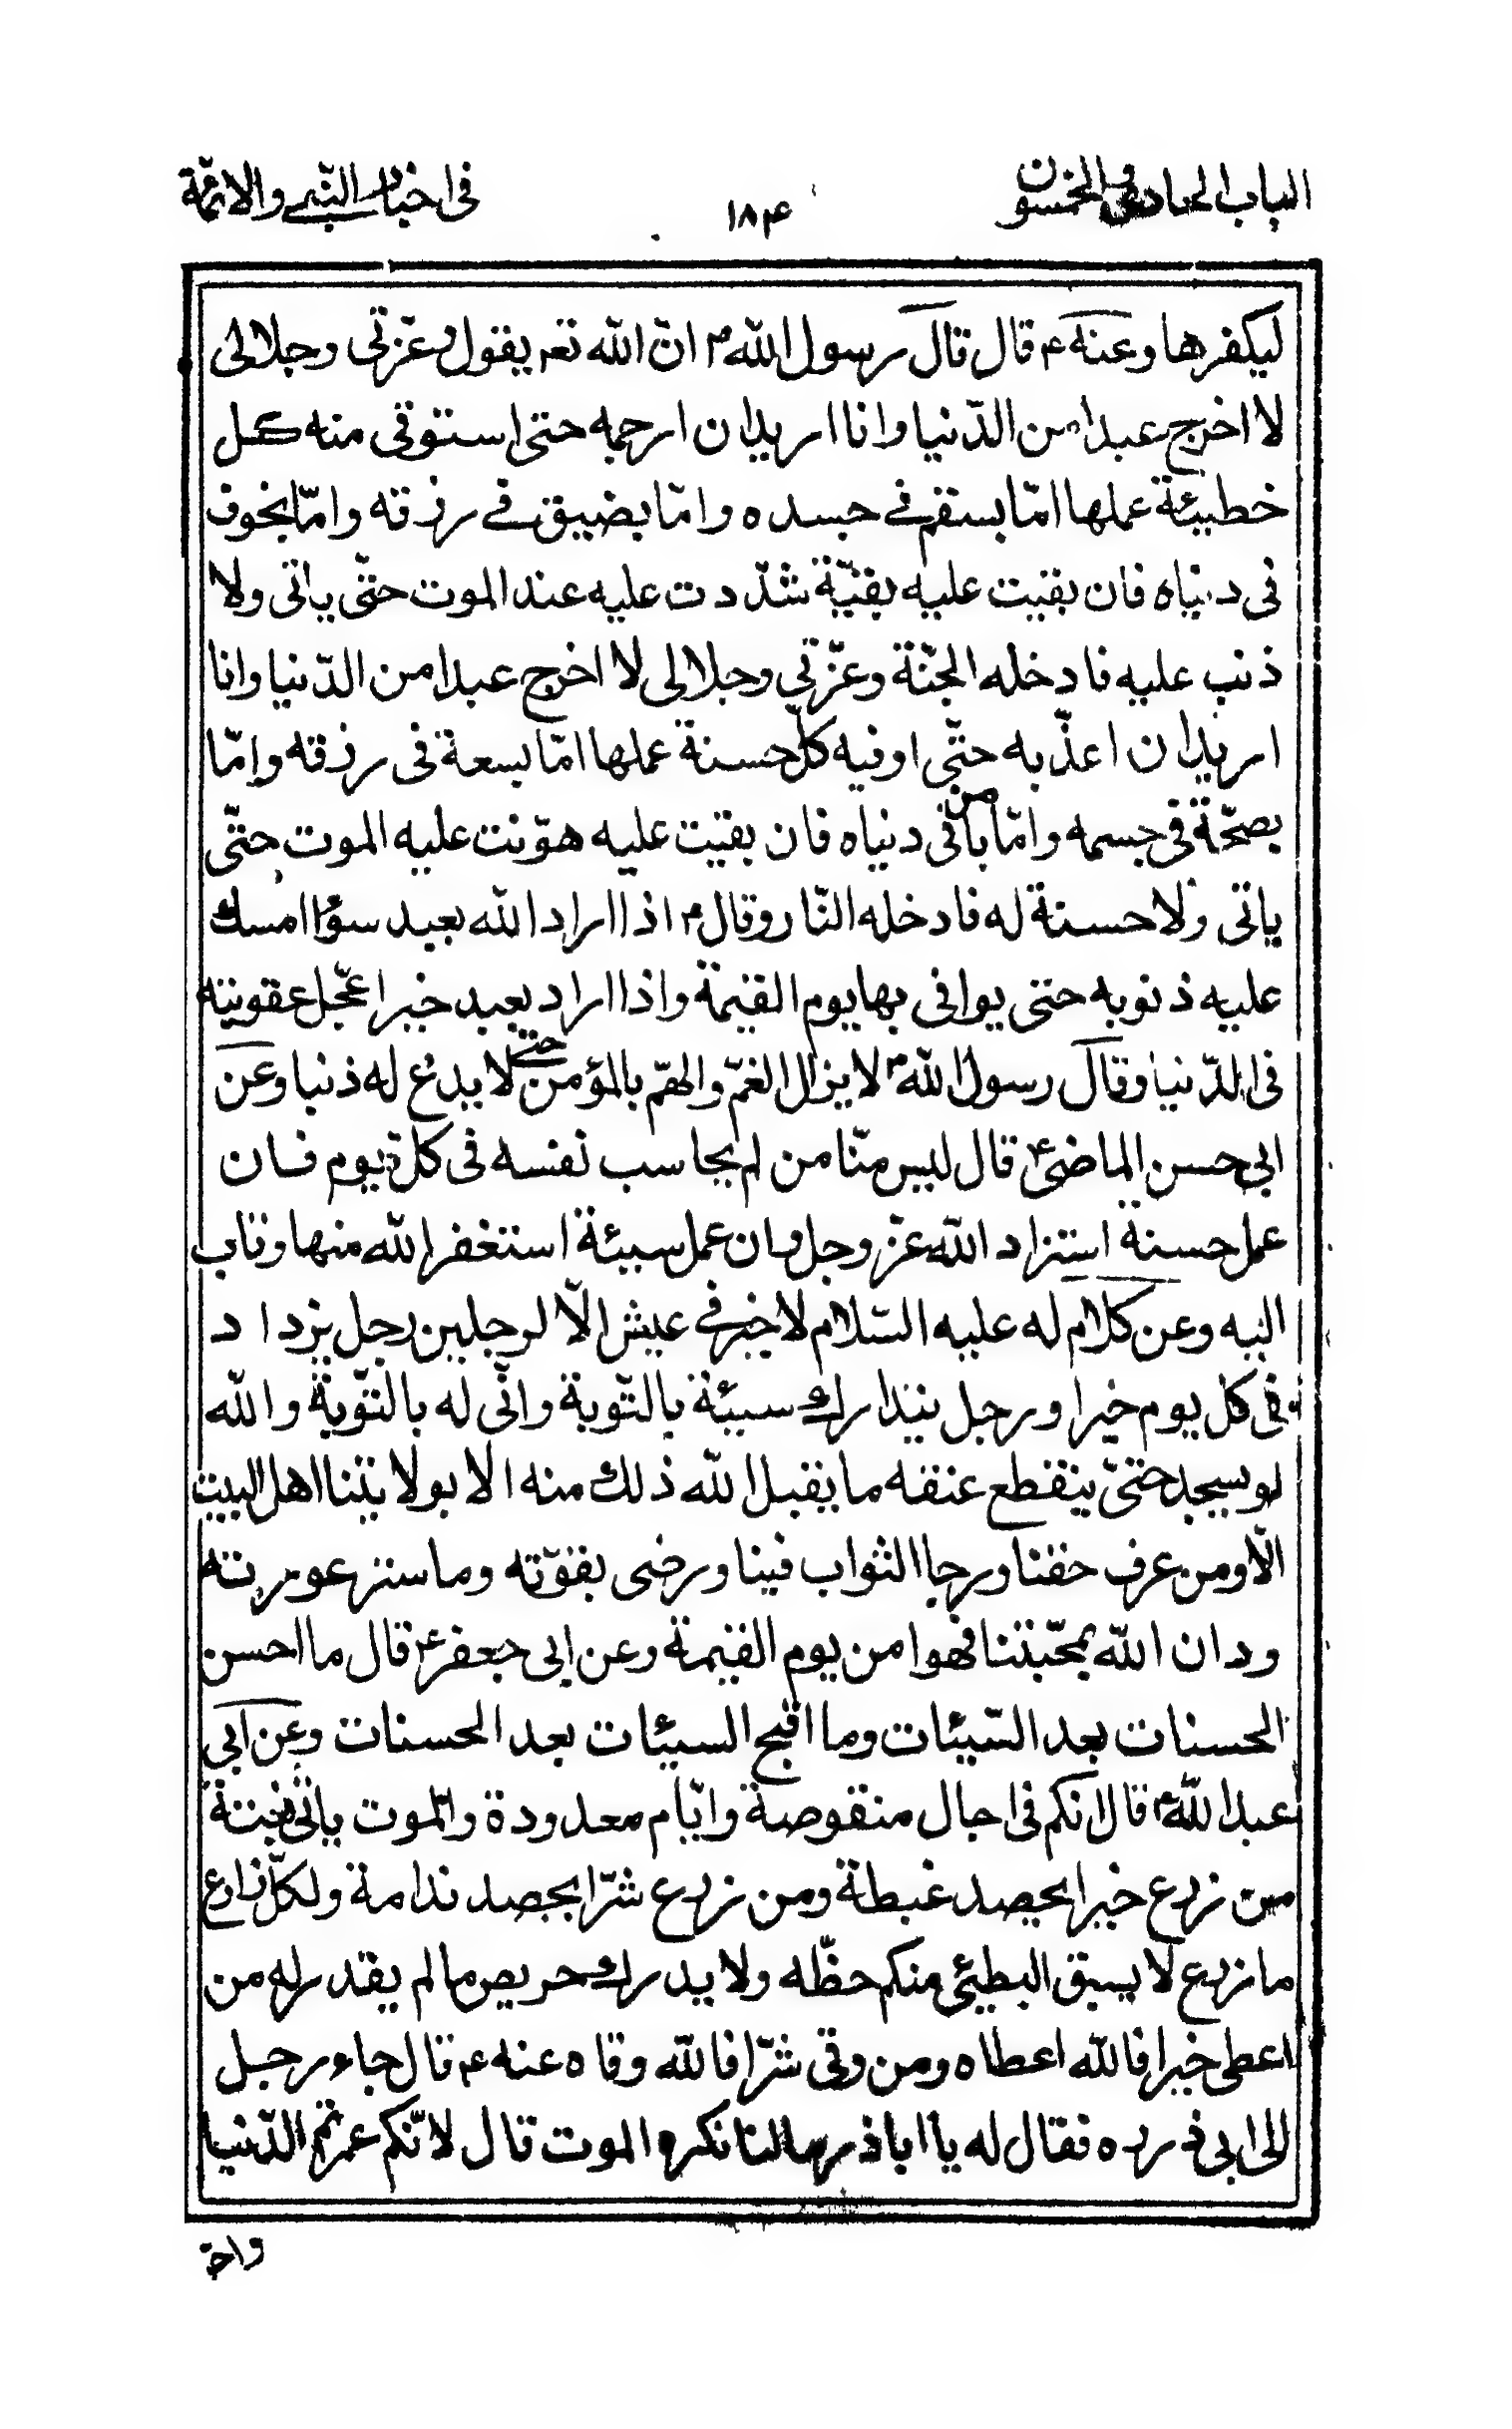 الباب الحادى والخمسون
۱۸۴
فى اخبار النبى والائمّة
ليكفرها وعنه ع قال قال رسول الله ص انّ الله تعم يقول وعزتى وجلالى
لا اخرج عبدا من الدّنيا وانا اريد ان ارحمه حتى استوفى منه كل
خطيئة عملها امّا بسقم فى جسده وامّا بضيق فى رزقه وامّا بخوف
فى دنياه فان بقيت عليه بقيّة شدّدت عليه عند الموت حتّى ياتى ولا
ذنب عليه فادخله الجنّة وعزّتى وجلالى لا اخرج عبدا من الدّنيا وانا
اريد ان اعذّبه حتّى اوفيه كلّ حسنة عملها امّا بسعة فى رزقه وامّا
بصحّة فى جسمه وامّا بامن فى دنياه فان بقيت عليه هوّنت عليه الموت حتّى
ياتى ولا حسنة له فادخله النّار وقال ص اذا اراد الله بعبد سوؤا امسك
عليه ذنوبه حتى يوافى بها يوم القيمة واذا اراد بعبد خيرا عجّل عقوبته
فى الدّنيا وقال رسول الله ص لا يزال الغمّ والهمّ بالمؤمن حتى لا يدع له ذنبا وعن
ابى حسن الماضى ع قال ليس منّا من لم يحاسب نفسه فى كل يوم فان
عمل حسنة استزاد الله عزّ وجل وان عمل سيئة استغفر الله منها وتاب
اليه وعن كلام له عليه السّلام لا خير فى عيش الّا لرجلين رجل يزداد
فى كل يوم خيرا ورجل يتدارك سيئة بالتّوبة وانّى له بالتّوبة والله
لو سجد حتّى ينقطع عنقه ما يقبل الله ذلك منه الا بولايتنا اهل البيت
الّا ومن عرف حقنا ورجا الثواب فينا ورضى بقوّته وما ستر عورته
ودان الله بمحّبتنا فهو امن يوم القيمة وعن ابى جعفر ع قال ما احسن
الحسنات بعد السّيئات وما اقبح السيئات بعد الحسنات وعن ابى
عبد الله ع قال انكم فى اجال منقوصة وايّام معدودة والموت ياتى بغتة
من زرع خيرا يحصد غبطة ومن زرع شرّا يحصد ندامة ولكلّ زارع
ما زرع لا يسبق البطيئ منكم حظّه ولا يدرك حريص ما لم يقدر له من
اعطى خيرا فالله اعطاه ومن وقى شرّا فالله وقاه عنه ع قال جاء رجل
الى ابى ذر ره فقال له يا اباذر ما لنا نكره الموت قال لانّكم عمرتم الدّنيا
واخ